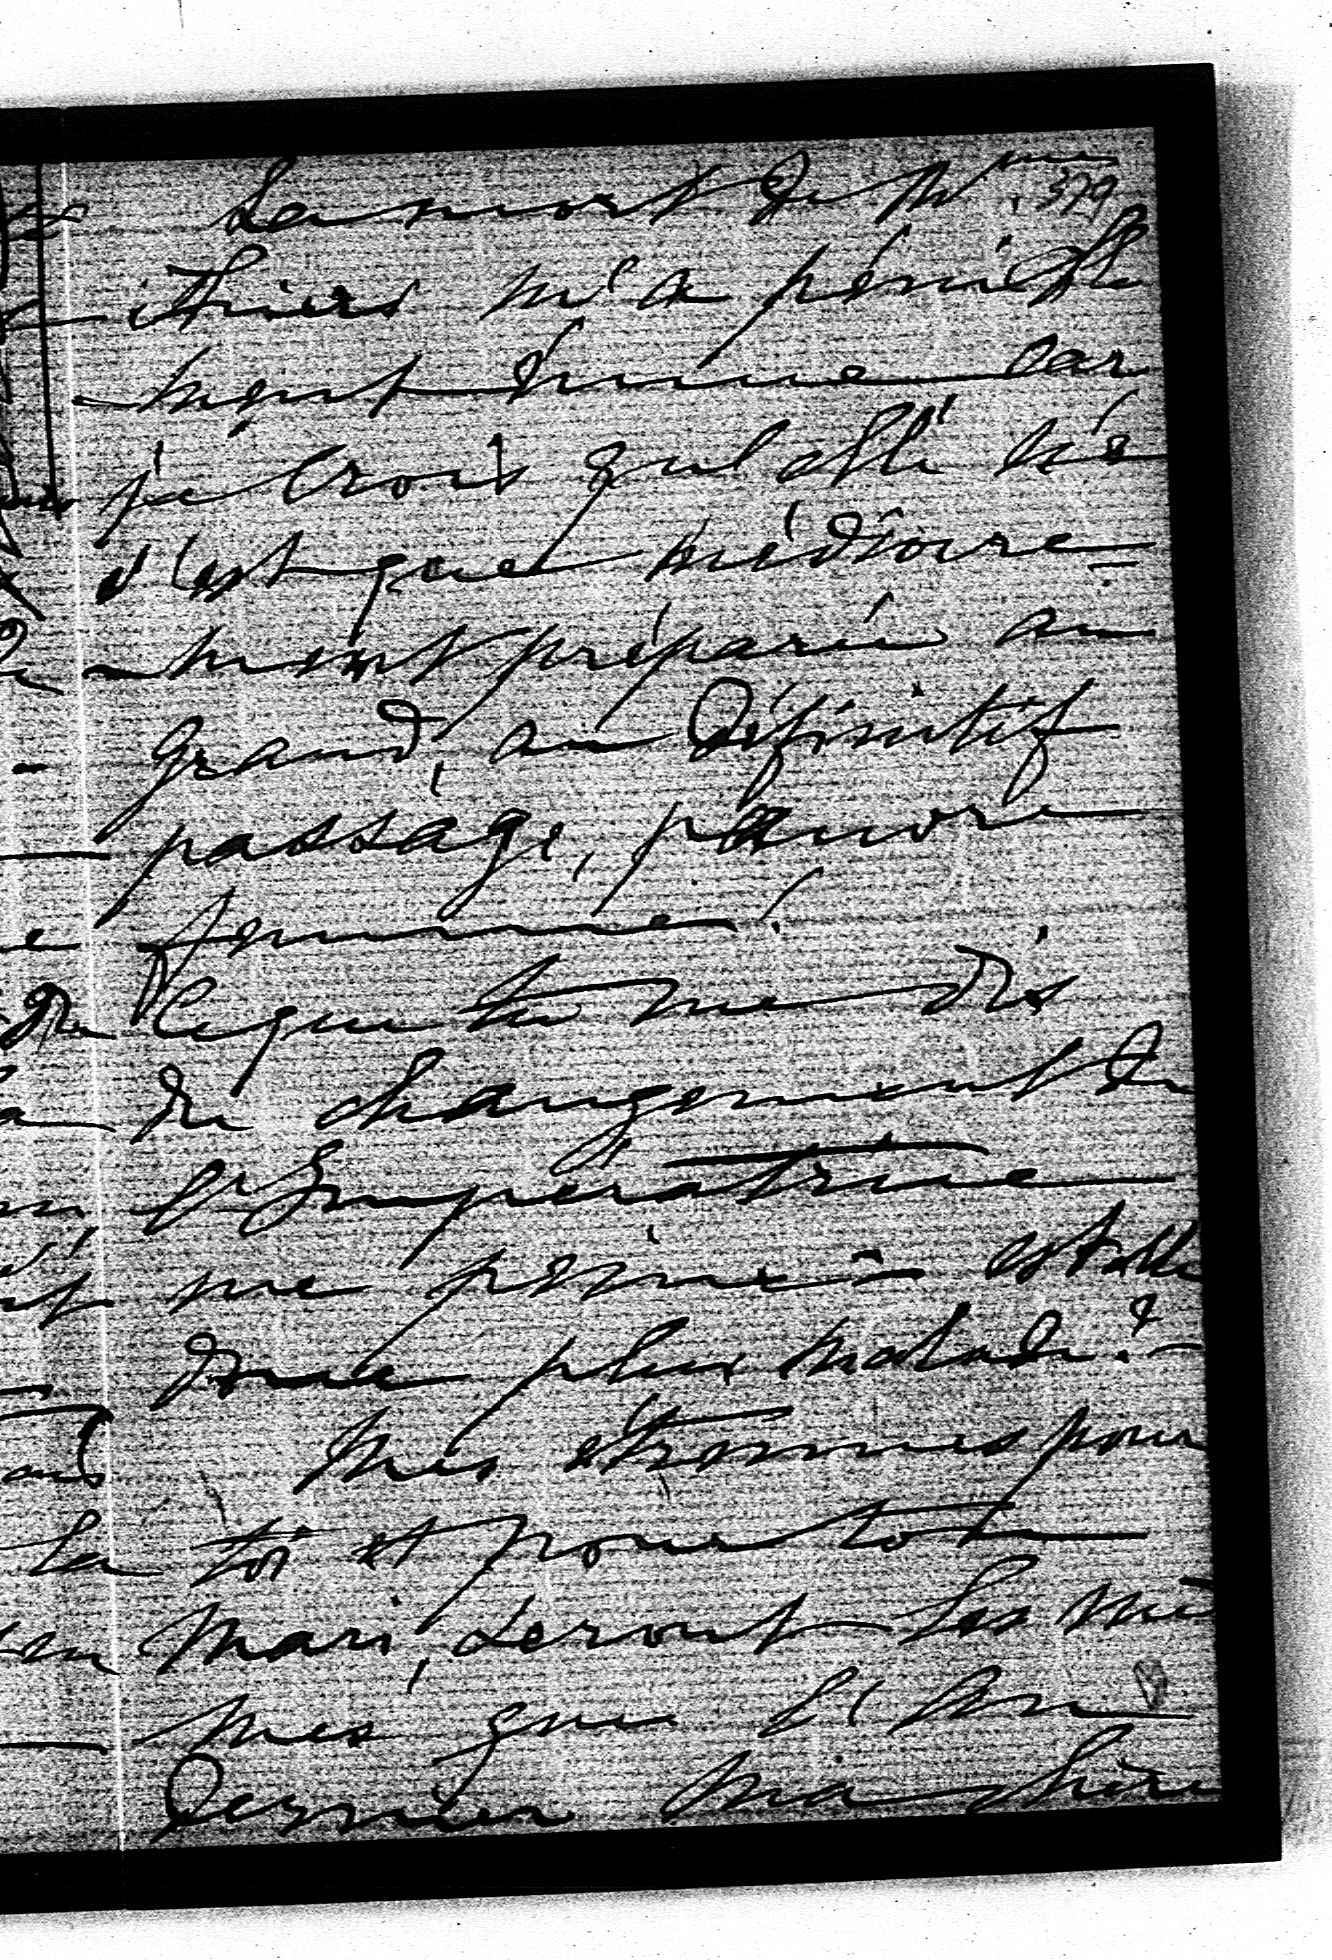 La mort de Mme
379
Thiers m'a pénible
-ment émue car
je crois qu'elle ne
s'est que médiocre
-ment préparée au
grand, au définitif
passage, pauvre
femme!
Ce que tu me dis
du changement de
l'Impératrice
me peine - est elle
donc plus malade? -
Mes étrennes pour
toi et pour ton
mari, seront les mê
mes que l'an
dernier ma chère